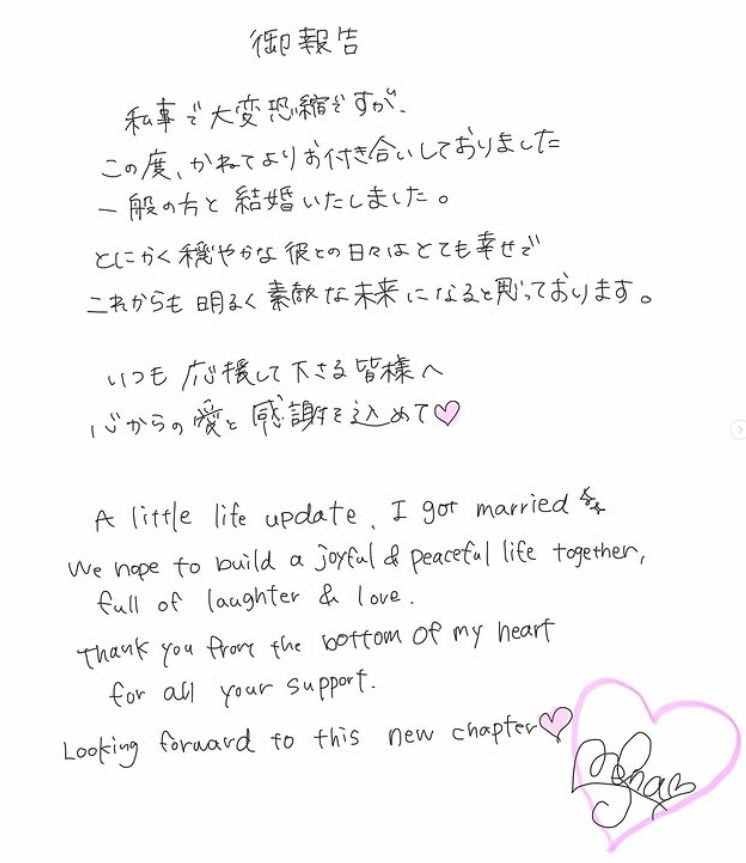 御報告
私事で大変恐縮ですが、
この度、かねてよりお付き合いしておりました
一般の方と結婚いたしました。
とにかく穏やかな彼との日々はとても幸せで
これからも明るく素敵な未来になると思っております。
いつも応援して下さる皆様へ
心からの愛と感謝を込めて♡
A little life update, I got married
We hope to build a joyful & peaceful life together,
full of laughter & love.
Thank you from the bottom of my heart
for all your support.
Looking forward to this new chapter♡